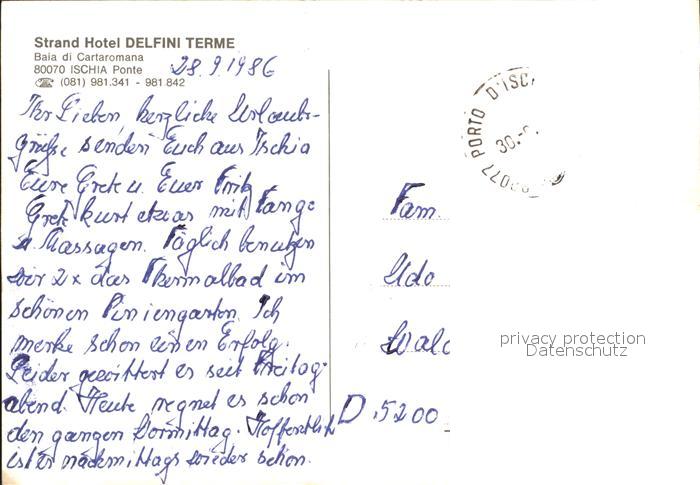 Strand Hotel DELFINI TERME
Baia di Cartaromana
80070 ISCHIA Ponte
☎ (081) 981.341 - 981.842
28.9.1986
Ihr Lieben, herzliche Urlaubs-
grüße senden Euch aus Ischia
Eure Grete u. Euer Fritz
Grete kurt etwas mit Fango
u. Massagen. Täglich benutzen
wir 2x das Thermalbad im
schönen Piniengarten. Ich
merke schon einen Erfolg.
Leider gewittert es seit Freitag-
abend. Heute regnet es schon
den ganzen Vormittag. Hoffentlich
ist er nachmittags wieder schön.
PORTO D'ISC
30.
Fam.
Udo
Wald
D 5200
privacy protection
Datenschutz